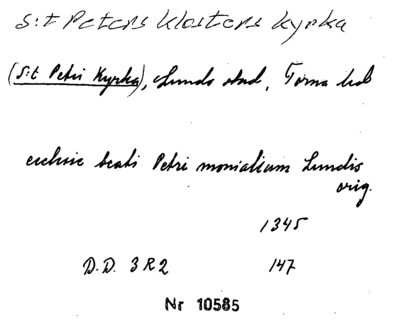 S:t Peters Klosters kyrka
(S:t Petri Kyrka), Lunds stad, Torna hd
ecclesie beati Petri monialium Lundis
orig.
1345
D.D. 3 R 2 147
Nr 10585